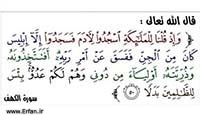 قال الله تعالى :
﴿ وَإِذْ قُلْنَا لِلْمَلَٰٓئِكَةِ ٱسْجُدُوا۟ لِءَادَمَ فَسَجَدُوٓا۟ إِلَّآ إِبْلِيسَ
كَانَ مِنَ ٱلْجِنِّ فَفَسَقَ عَنْ أَمْرِ رَبِّهِۦٓ ۗ أَفَتَتَّخِذُونَهُۥ
وَذُرِّيَّتَهُۥٓ أَوْلِيَآءَ مِن دُونِى وَهُمْ لَكُمْ عَدُوٌّۢ ۚ بِئْسَ
لِلظَّٰلِمِينَ بَدَلًا ﴾
سورة الكهف
www.Erfan.ir